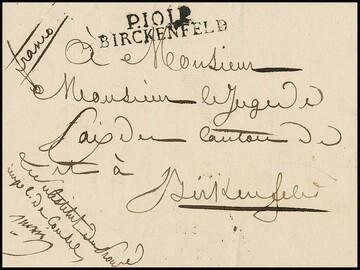 P101P
BIRCKENFELD
franco
à Monsieur
Monsieur le Juge de
Paix du Canton de
et à
Birkenfeld
Le substitut du